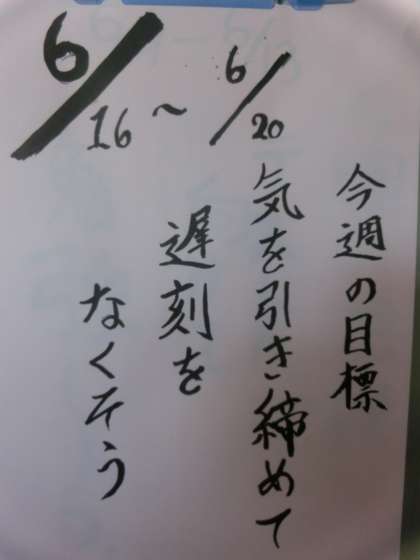 6/16～6/20
今週の目標
気を引き締めて
遅刻を
なくそう